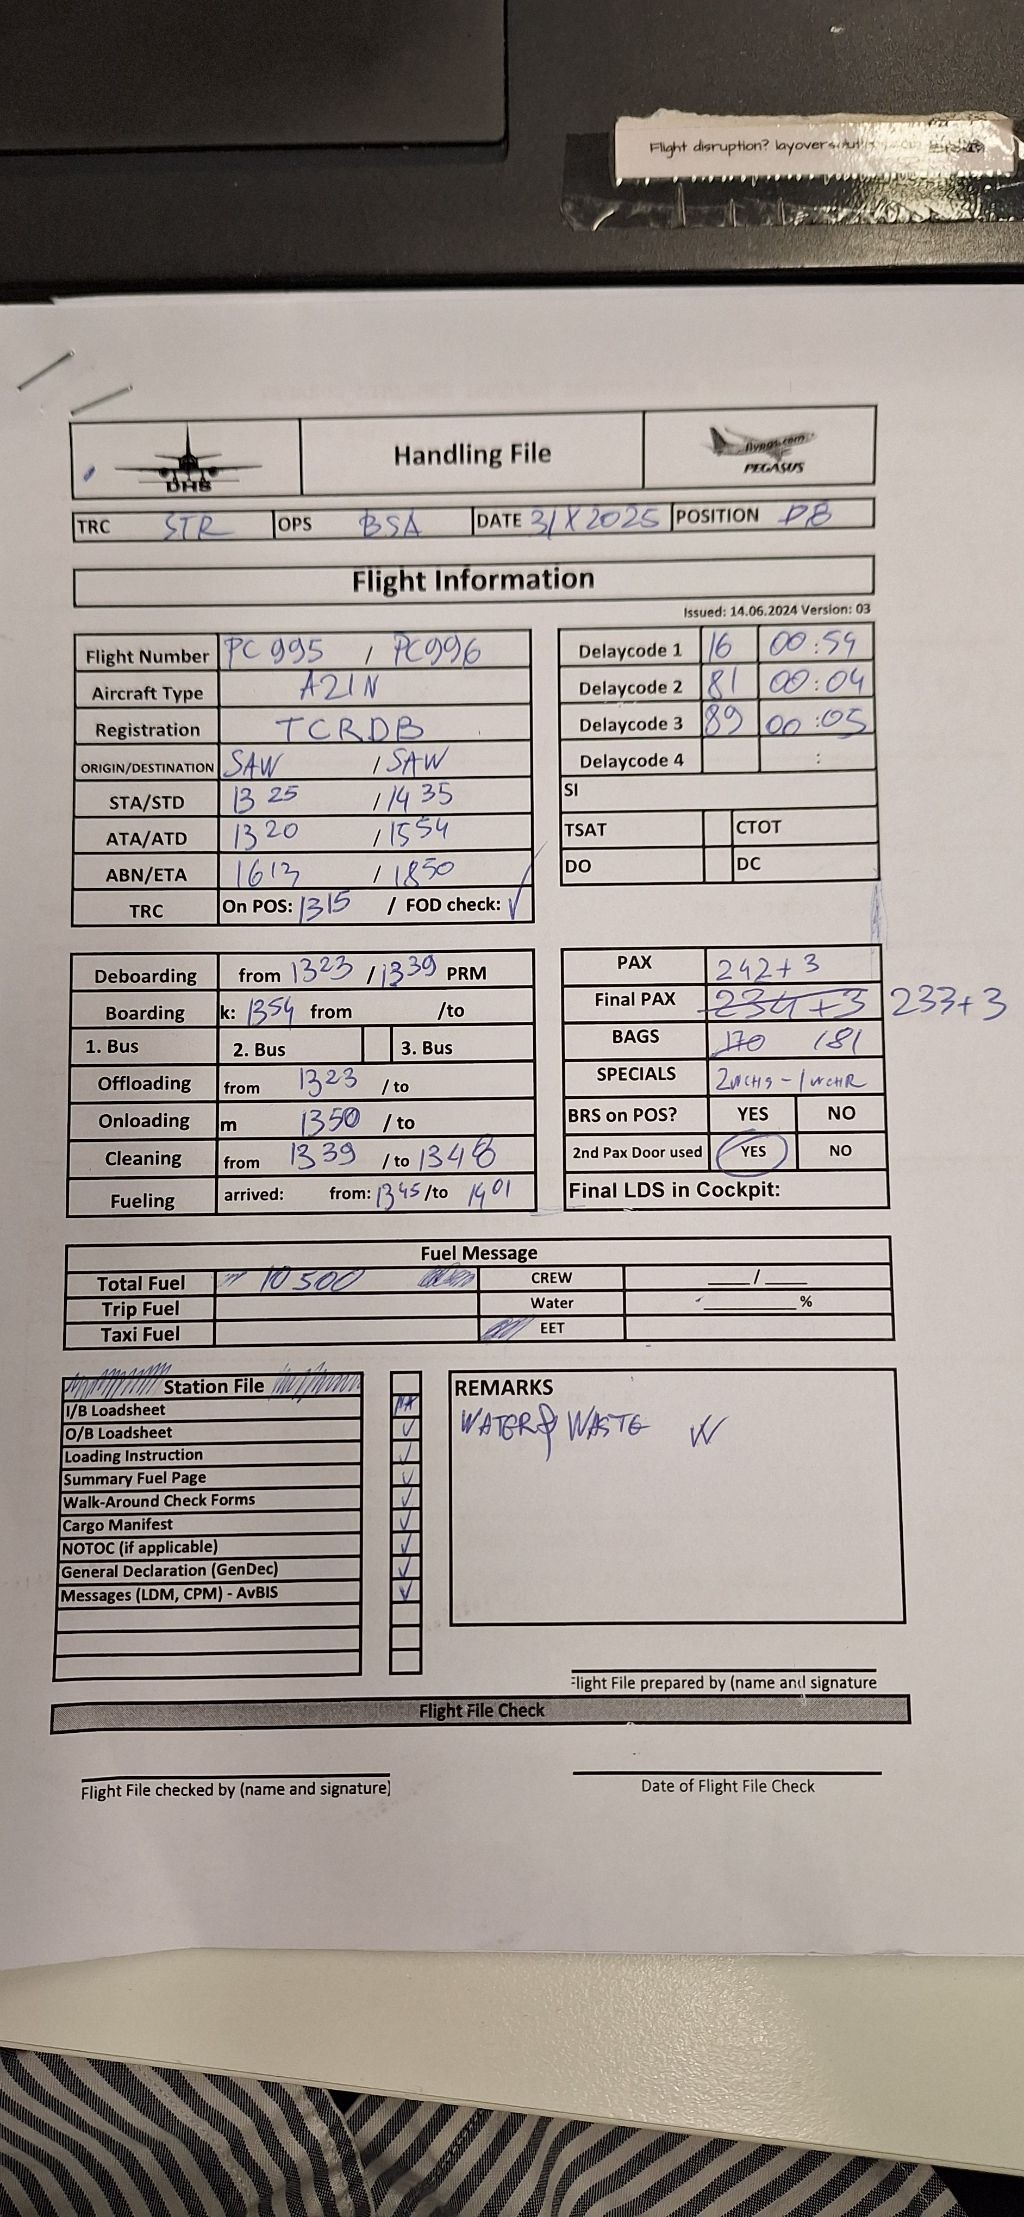 Flight disruption? layover
DHS
Handling File
flypgs.com
PEGASUS
TRC STR OPS BSA DATE 31 X 2025 POSITION P8
Flight Information
Issued: 14.06.2024 Version: 03
Flight Number PC 995 / PC996
Delaycode 1 16 00:54
Aircraft Type A21N
Delaycode 2 81 00:04
Registration TCRDB
Delaycode 3 89 00:05
ORIGIN/DESTINATION SAW / SAW
Delaycode 4 :
STA/STD 13 25 / 14 35
SI
ATA/ATD 13 20 / 15 54
TSAT CTOT
ABN/ETA 1613 / 1850
DO DC
TRC On POS: 1315 / FOD check: ✓
Deboarding from 1323 / 1339 PRM
PAX 242+3
Boarding k: 1354 from /to
Final PAX 234+3 233+3
1. Bus 2. Bus 3. Bus
BAGS 170 181
Offloading from 1323 / to
SPECIALS 2WCHS - 1WCHR
Onloading m 1350 / to
BRS on POS? YES NO
Cleaning from 1339 / to 1348
2nd Pax Door used YES NO
Fueling arrived: from: 1345 /to 1401
Final LDS in Cockpit:
Fuel Message
Total Fuel 10 500 CREW ____/____
Trip Fuel Water ________%
Taxi Fuel EET
Station File
I/B Loadsheet
O/B Loadsheet ✓
Loading Instruction ✓
Summary Fuel Page ✓
Walk-Around Check Forms ✓
Cargo Manifest ✓
NOTOC (if applicable) ✓
General Declaration (GenDec) ✓
Messages (LDM, CPM) - AvBIS ✓
REMARKS
WATER & WASTE
Flight File prepared by (name and signature
Flight File Check
Flight File checked by (name and signature)
Date of Flight File Check